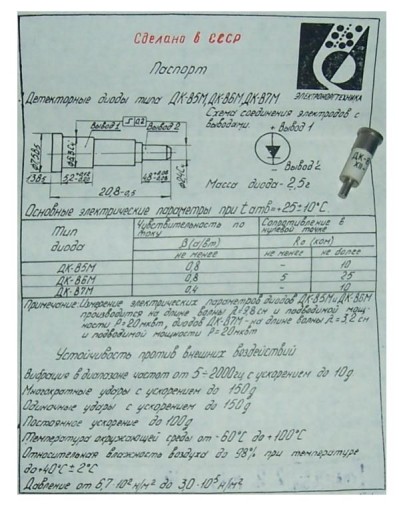 Сделано в СССР
Паспорт
ЭЛЕКТРОНОРГТЕХНИКА
Детекторные диоды типа ДК-В5М, ДК-В6М, ДК-В7М
Схема соединения электродов с
выводами.
Вывод 1
Вывод 2
+ Вывод 1
- Вывод 2
20,8-0,5
Масса диода - 2,5г
Основные электрические параметры при tamb=+25±10°С
Тип
диода
Чувствительность по
току
β(а/вт)
не менее
Сопротивление в
нулевой точке
Ro (ком)
не менее
не более
ДК-В5М 0,8 10
ДК-В6М 0,8 5 25
ДК-В7М 0,4 - 10
Примечание Измерение электрических параметров диодов ДК-В5М и ДК-В6М
производится на длине волны λ=9,8 см и подводимой мощ-
ности P=20мквт, диодов ДК-В7М - на длине волны λ=3,2 см
и подводимой мощности P=20мквт
Устойчивость против внешних воздействий
Вибрация в диапазоне частот от 5÷2000гц с ускорением до 10g
Многократные удары с ускорением до 150g
Одиночные удары с ускорением до 150g
Постоянное ускорение до 100g
Температура окружающей среды от -60°С до +100°С
Относительная влажность воздуха до 98% при температуре
до +40°С ± 2°С
Давление от 6,7·10² н/м² до 3,0·10⁵ н/м²